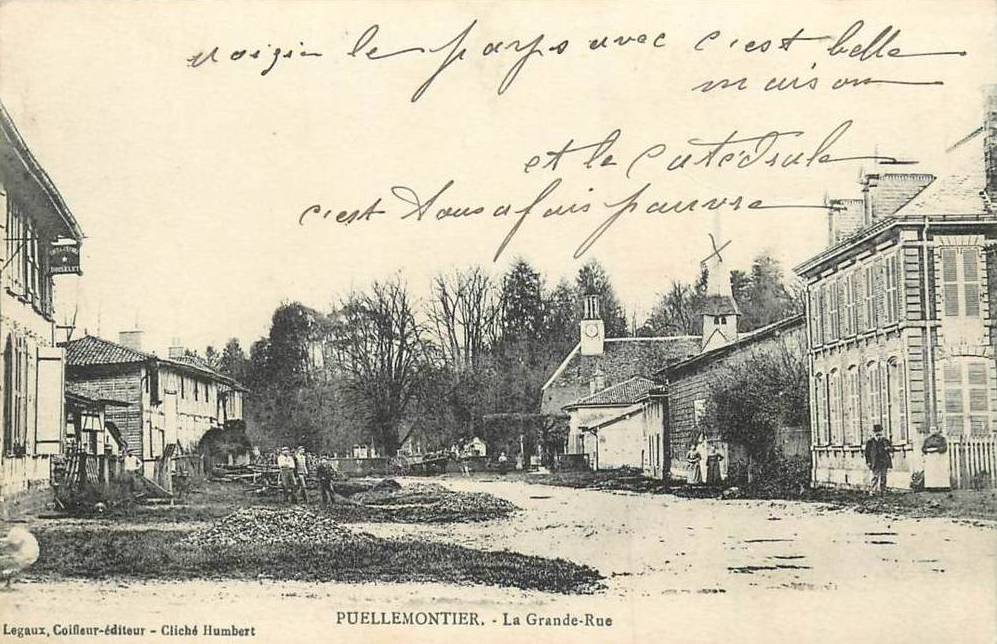 voizin le pays avec c'est belle
maison
et le catédrale
c'est tousafais pauvre
DOISELET
PUELLEMONTIER. - La Grande-Rue
Legaux, Coiffeur-éditeur - Cliché Humbert